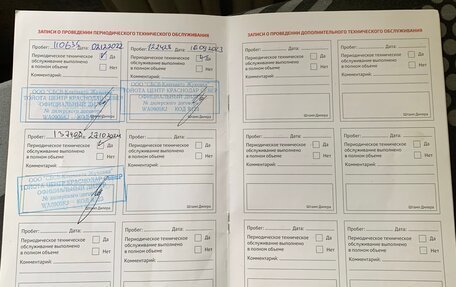 ЗАПИСИ О ПРОВЕДЕНИИ ПЕРИОДИЧЕСКОГО ТЕХНИЧЕСКОГО ОБСЛУЖИВАНИЯ
Пробег: Дата: 02.12.2022
Периодическое техническое Да
обслуживание выполнено
в полном объеме Нет
Комментарий:
ТОЙОТА ЦЕНТР КРАСНОДАР
ОФИЦИАЛЬНЫЙ ДИЛЕР
Штамп Дилера
Пробег: 122428 Дата:
Периодическое техническое Да
обслуживание выполнено
в полном объеме Нет
Комментарий:
ТОЙОТА ЦЕНТР КРАСНОДАР
ОФИЦИАЛЬНЫЙ ДИЛЕР
Штамп Дилера
Пробег: Дата:
Периодическое техническое Да
обслуживание выполнено
в полном объеме Нет
Комментарий:
Штамп Дилера
Пробег: Дата:
Периодическое техническое Да
обслуживание выполнено
в полном объеме Нет
Комментарий:
Штамп Дилера
Пробег: Дата:
Периодическое техническое Да
обслуживание выполнено
в полном объеме Нет
Комментарий:
Пробег: Дата:
Периодическое техническое Да
обслуживание выполнено
в полном объеме Нет
Комментарий:
ЗАПИСИ О ПРОВЕДЕНИИ ДОПОЛНИТЕЛЬНОГО ТЕХНИЧЕСКОГО ОБСЛУЖИВАНИЯ
Пробег: Дата:
Периодическое техническое Да
обслуживание выполнено
в полном объеме Нет
Комментарий:
Штамп Дилера
Пробег: Дата:
Периодическое техническое Да
обслуживание выполнено
в полном объеме Нет
Комментарий:
Штамп Дилера
Пробег: Дата:
Периодическое техническое Да
обслуживание выполнено
в полном объеме Нет
Комментарий:
Штамп Дилера
Пробег: Дата:
Периодическое техническое Да
обслуживание выполнено
в полном объеме Нет
Комментарий:
Штамп Дилера
Пробег: Дата:
Периодическое техническое Да
обслуживание выполнено
в полном объеме Нет
Комментарий:
Пробег: Дата:
Периодическое техническое Да
обслуживание выполнено
в полном объеме Нет
Комментарий: